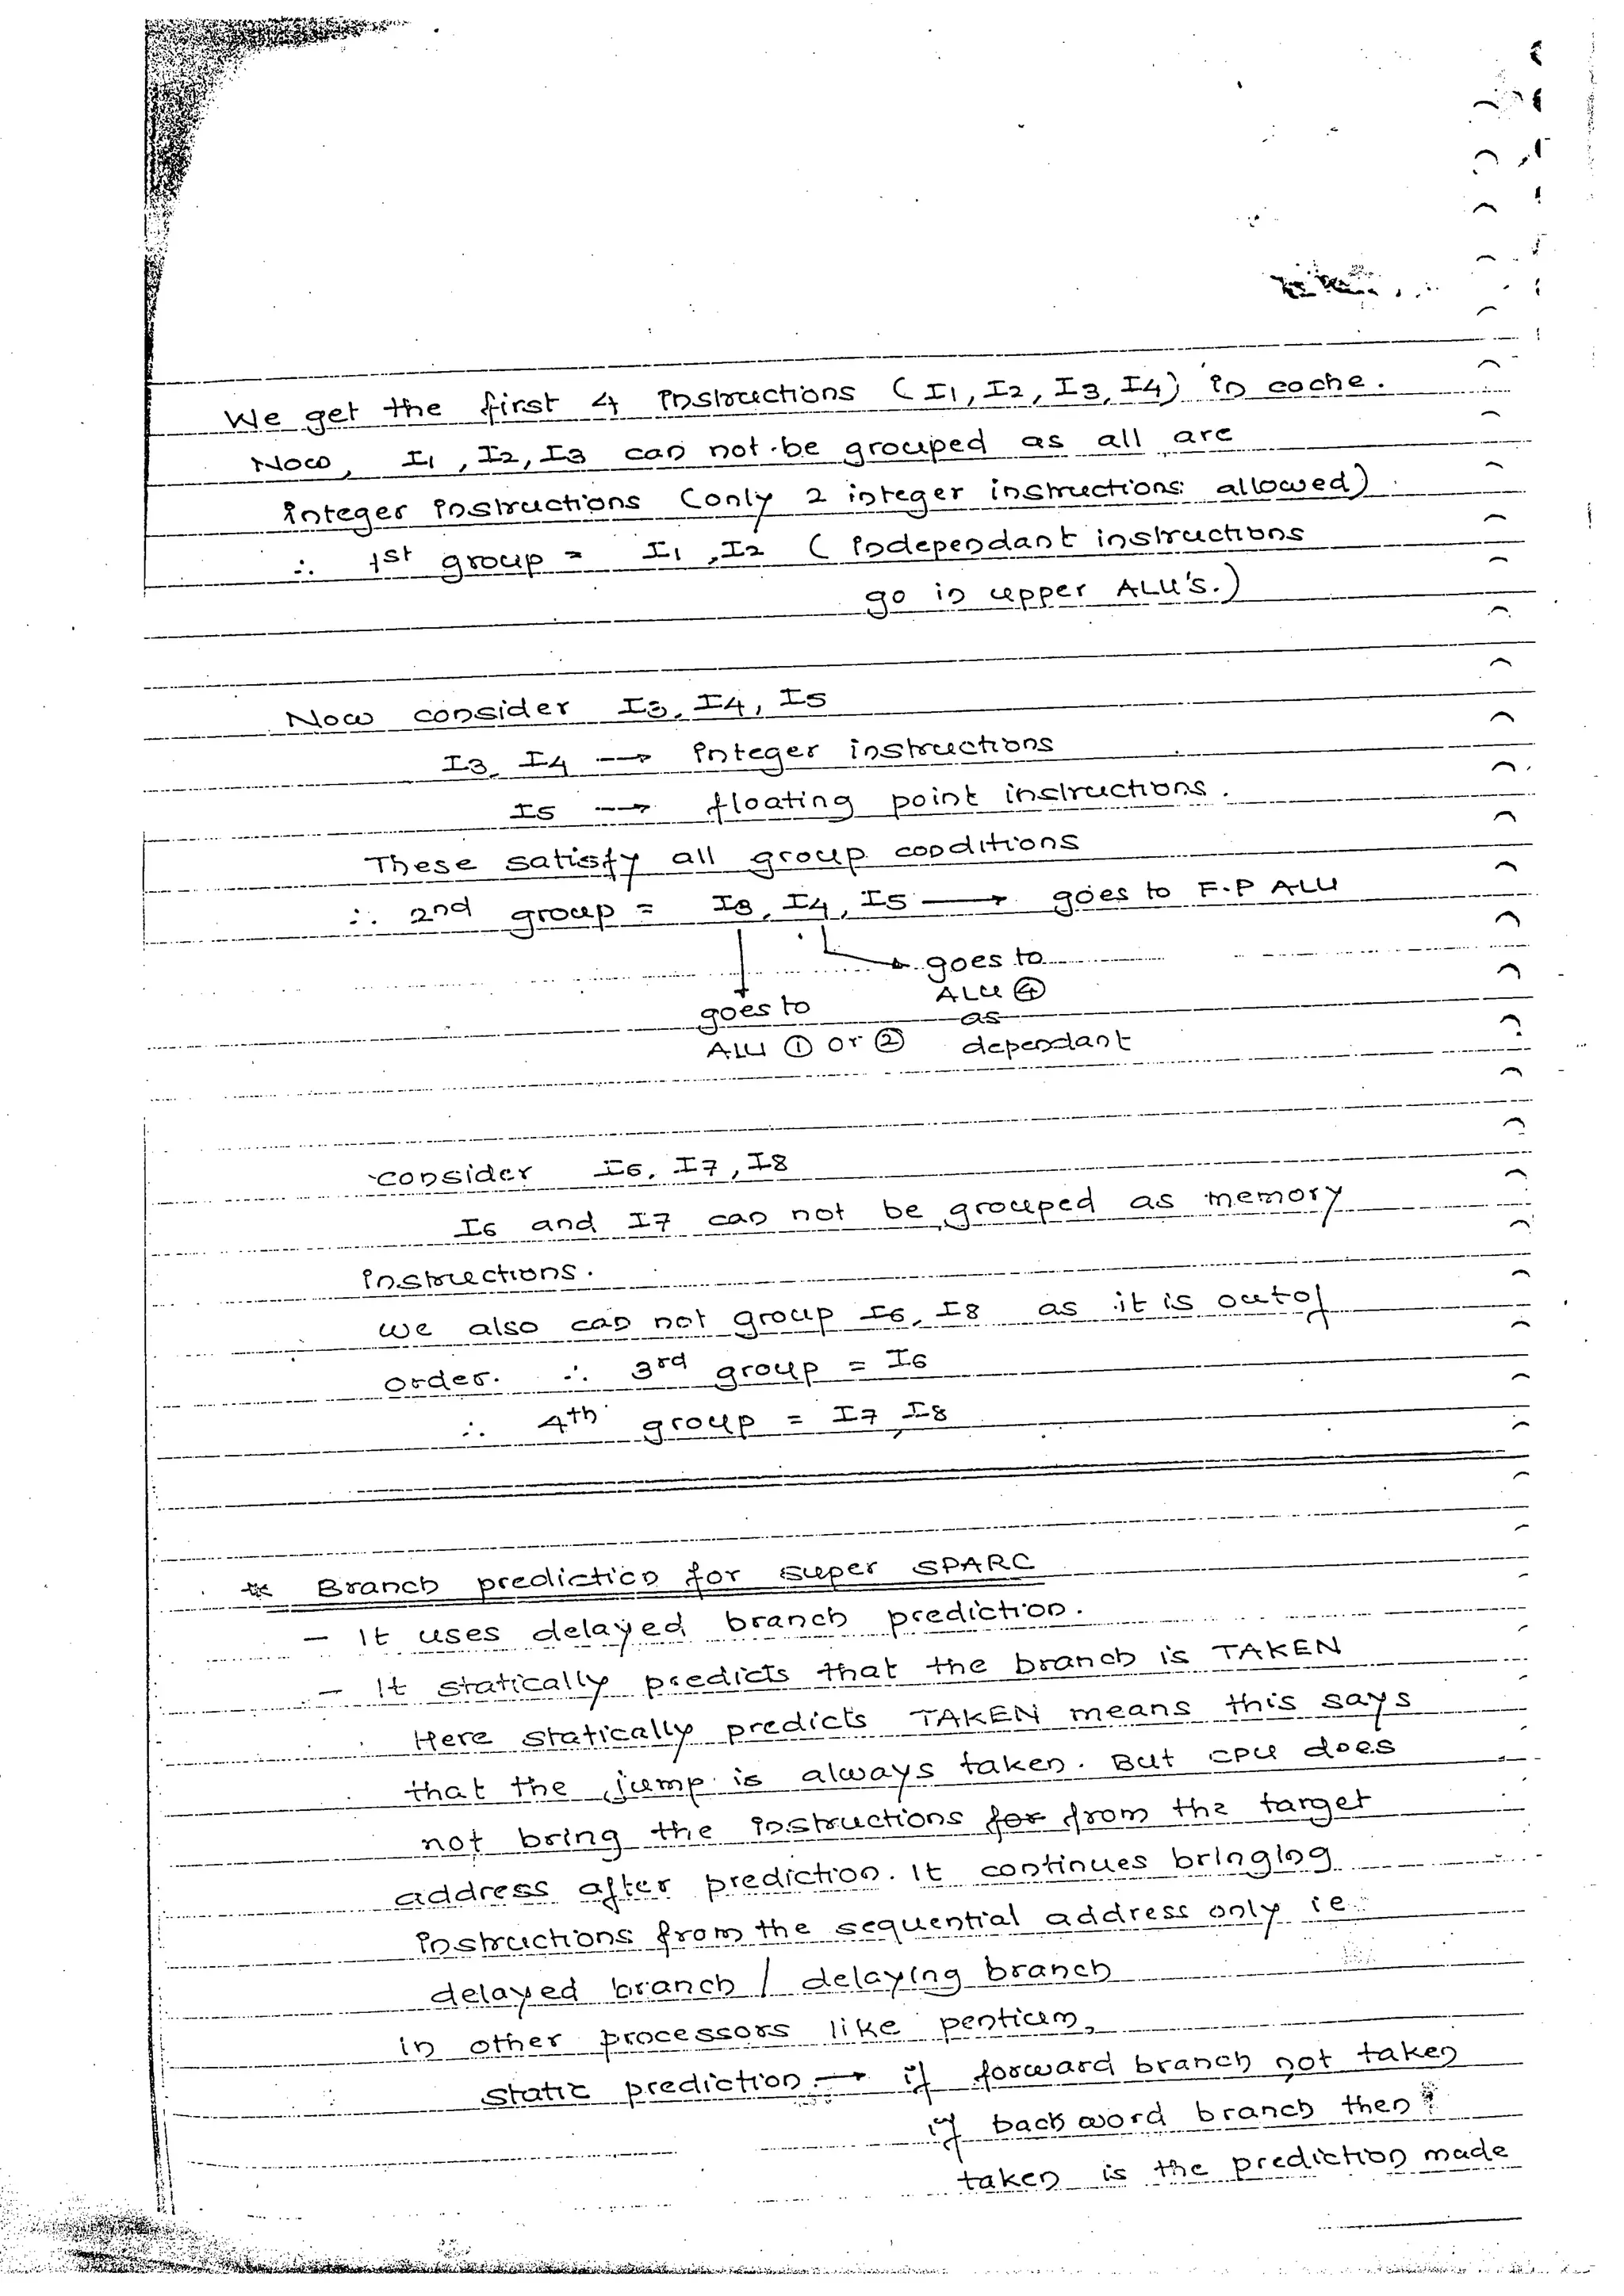 We get the first 4 instructions (I1, I2, I3, I4) in cache.
Now, I1, I2, I3 can not be grouped as all are
integer instructions (only 2 integer instructions allowed)
∴ 1st group = I1, I2 ( independant instructions
go in upper ALU's.)
Now consider I3, I4, I5
I3, I4 → integer instructions
I5 → floating point instructions.
These satisfy all group conditions
∴ 2nd group = I3, I4, I5 → goes to F.P ALU
goes to
ALU ④
as
dependant
goes to
ALU ① or ②
consider I6, I7, I8
I6 and I7 can not be grouped as memory
instructions.
we also can not group I6, I8 as it is out of
order. ∴ 3rd group = I6
∴ 4th group = I7, I8
* Branch prediction for super SPARC
- It uses delayed branch prediction.
- It statically predicts that the branch is TAKEN
Here statically predicts TAKEN means this says
that the jump is always taken. But CPU does
not bring the instructions for from the target
address after prediction. It continues bringing
instructions from the sequential address only ie
delayed branch / delaying branch
in other processors like pentium,
static prediction → if forward branch not taken
if backword branch then
taken is the prediction made